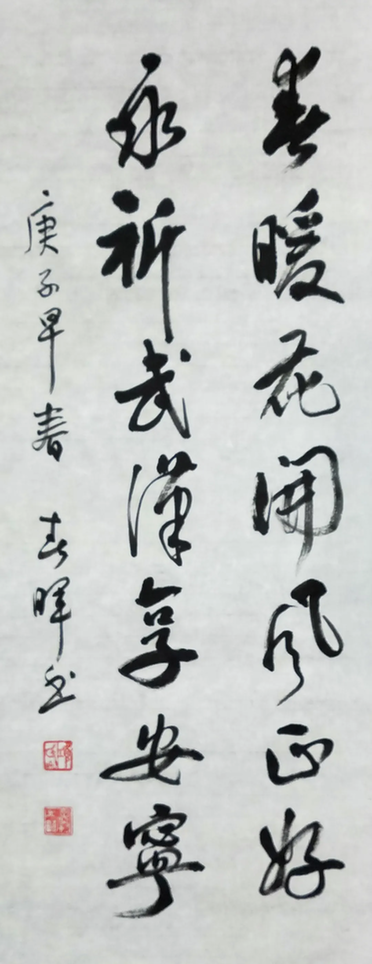 春暖花開风正好
永祈武漢享安寧
庚子早春 春暉书